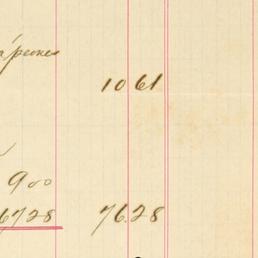 a'peones
1061
900
6728 7628